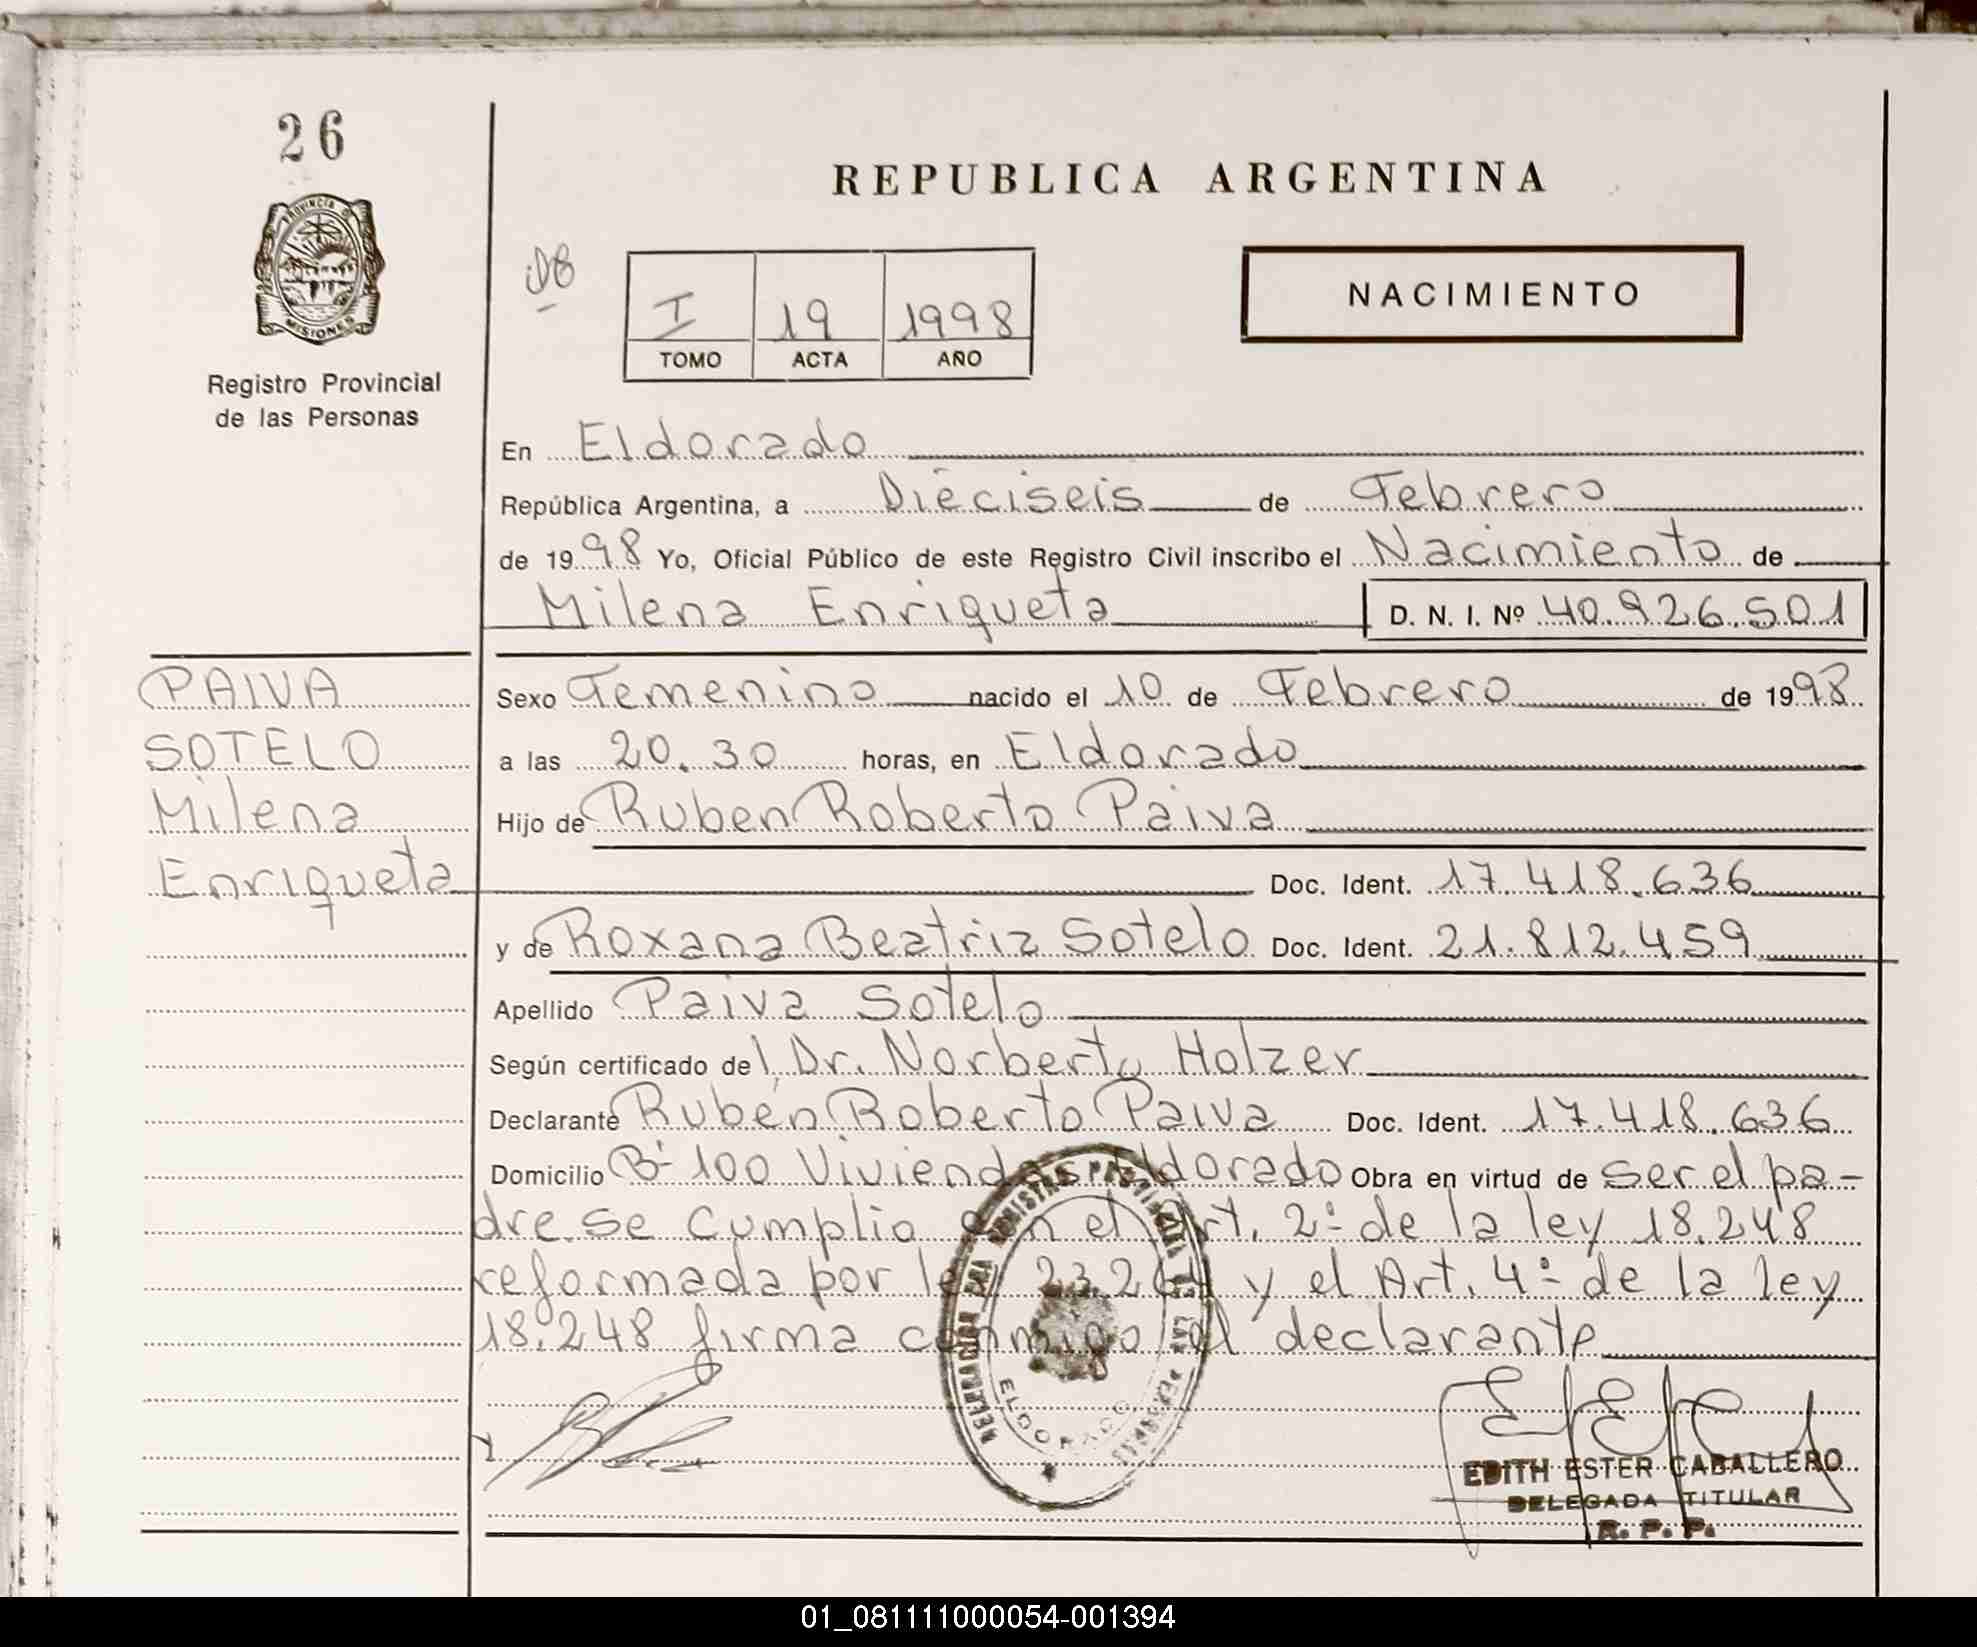 26
PROVINCIA DE
MISIONES
Registro Provincial
de las Personas
REPUBLICA ARGENTINA
I 19 1998
TOMO ACTA AÑO
NACIMIENTO
En Eldorado
República Argentina, a Dieciseis de Febrero
de 1998 Yo, Oficial Público de este Registro Civil inscribo el Nacimiento de
Milena Enriqueta D. N. I. Nº 40.926.501
PAIVA
SOTELO
Milena
Enriqueta
Sexo Femenino nacido el 10 de Febrero de 1998
a las 20.30 horas, en Eldorado
Hijo de Ruben Roberto Paiva
Doc. Ident. 17.418.636
y de Roxana Beatriz Sotelo Doc. Ident. 21.812.459
Apellido Paiva Sotelo
Según certificado del Dr. Norberto Holzer
Declarante Rubén Roberto Paiva Doc. Ident. 17.418.636
Domicilio Bº 100 Viviendas Eldorado Obra en virtud de ser el pa-
dre. Se cumplio con el Art. 2º de la ley 18.248
reformada por ley 23.264 y el Art. 4º de la ley
18.248 firma conmigo el declarante
ELDORADO
EDITH ESTER CABALLERO
DELEGADA TITULAR
R. P. P.
01_081111000054-001394